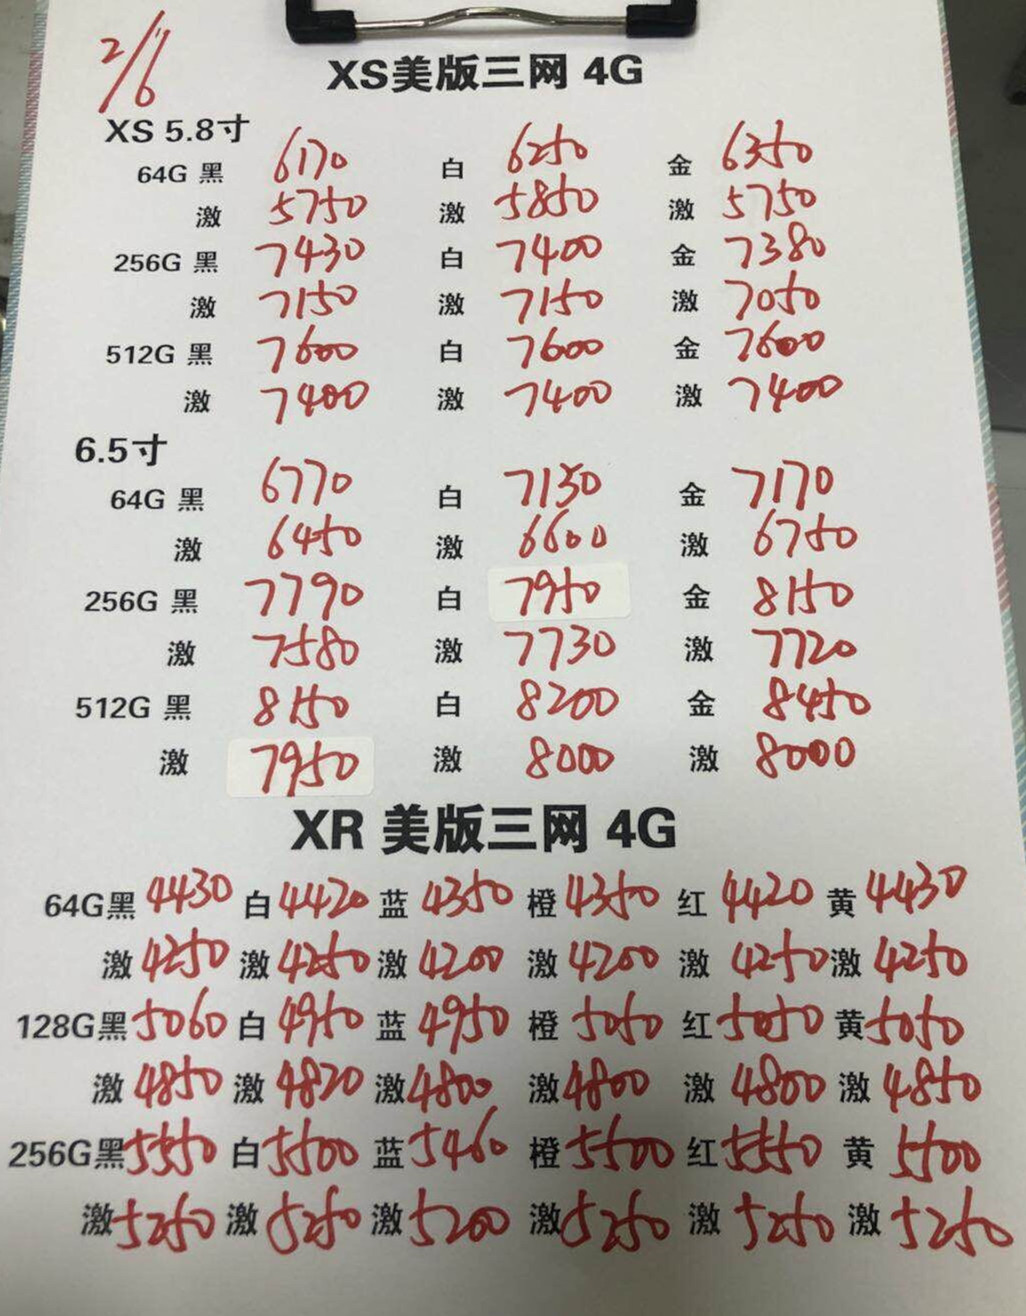 2/6
XS美版三网 4G
XS 5.8寸
64G 黑 6170 白 6250 金 6350
激 5750 激 5850 激 5750
256G 黑 7430 白 7400 金 7380
激 7150 激 7150 激 7050
512G 黑 7600 白 7600 金 7600
激 7400 激 7400 激 7400
6.5寸
64G 黑 6770 白 7130 金 7170
激 6450 激 6600 激 6750
256G 黑 7790 白 7950 金 8150
激 7580 激 7730 激 7720
512G 黑 8150 白 8200 金 8450
激 7950 激 8000 激 8000
XR 美版三网 4G
64G黑 4430 白 4420 蓝 4350 橙 4350 红 4420 黄 4430
激 4250 激 4250 激 4200 激 4200 激 4250 激 4250
128G黑 5060 白 4950 蓝 4950 橙 5050 红 5050 黄 5050
激 4850 激 4820 激 4800 激 4800 激 4800 激 4850
256G黑 5550 白 5500 蓝 5460 橙 5500 红 5550 黄 5500
激 5250 激 5250 激 5200 激 5250 激 5250 激 5250